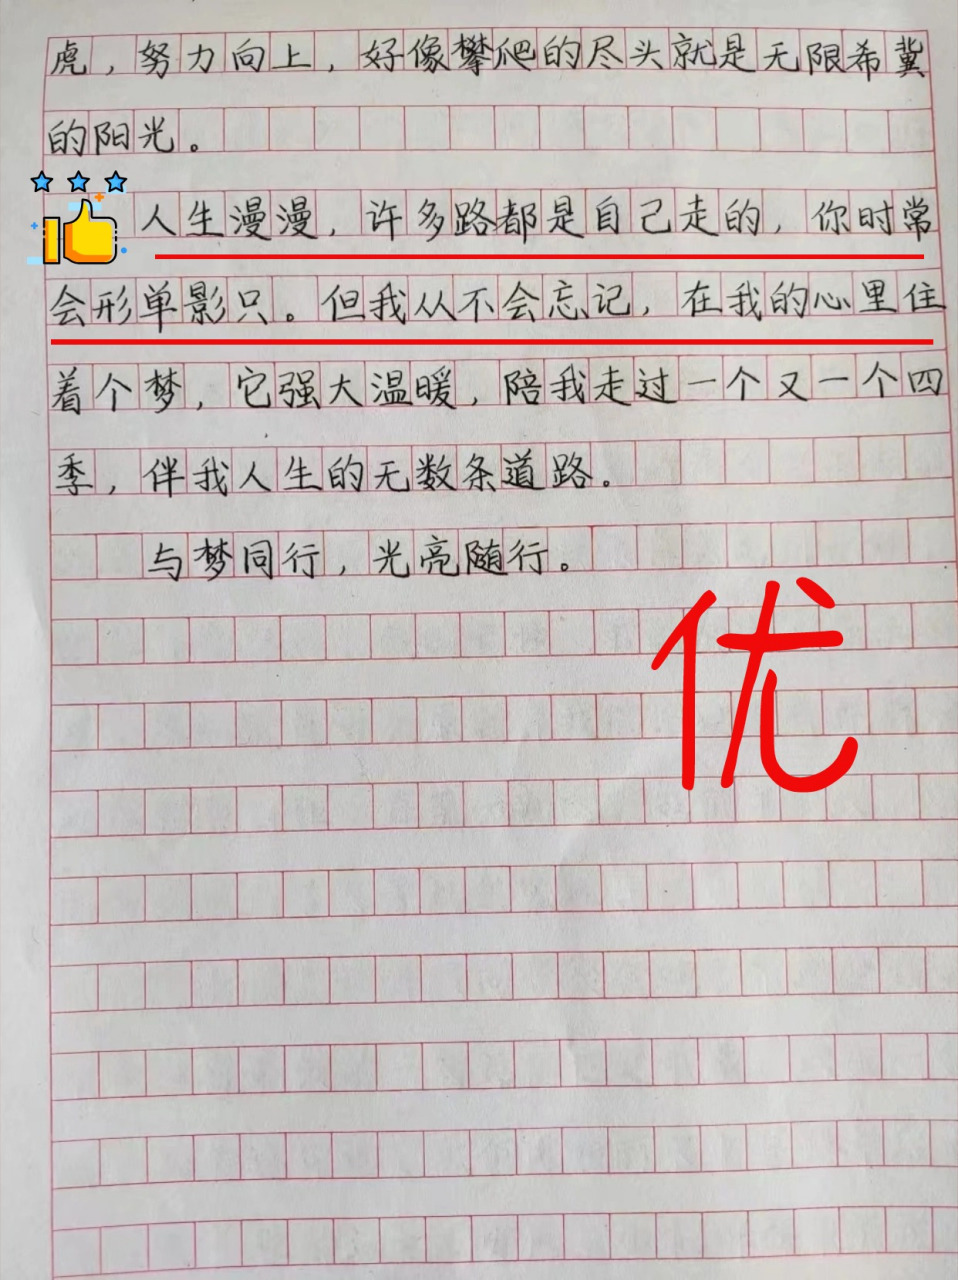 虎，努力向上，好像攀爬的尽头就是无限希冀
的阳光。
人生漫漫，许多路都是自己走的，你时常
会形单影只。但我从不会忘记，在我的心里住
着个梦，它强大温暖，陪我走过一个又一个四
季，伴我人生的无数条道路。
与梦同行，光亮随行。
优